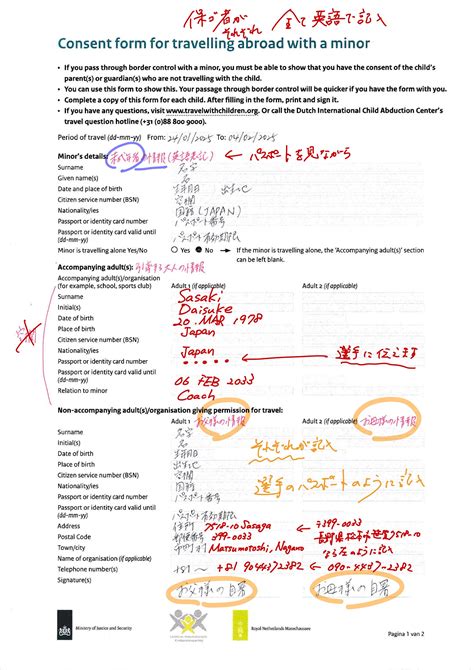 保護者が それぞれ 全て英語で記入
Consent form for travelling abroad with a minor
• If you pass through border control with a minor, you must be able to show you have the consent of the child's
parent(s) or guardian(s) who are not travelling with the child.
• You can use this form to show this. Your passage through border control will be quicker if you have the form with you.
• Complete a copy of this form for each child. After filling in the form, print and sign it.
• If you have any questions, visit www.travelwithchildren.org. Or call the Dutch International Child Abduction Center's
travel question hotline (+31 (0)88 800 9000).
Period of travel (dd-mm-yy) From: 24/01/2025 To: 04/02/2025
Minor's details: 情報 (英語表記) ← パスポートを見ながら
Surname 名字
Given name(s) 名
Date and place of birth 生年月日 出生地
Citizen service number (BSN) 空欄
Nationality/ies 国籍 (JAPAN)
Passport or identity card number パスポート番号
Passport or identity card valid until
(dd-mm-yy) パスポート有効期限
Minor is travelling alone Yes/No Yes No → If the minor is travelling alone, the 'Accompanying adult(s)' section
can be left blank.
Accompanying adult(s): 引率する大人の情報
Accompanying adult(s)/organisation
(for example, school, sports club) Adult 1 (if applicable) Adult 2 (if applicable)
Surname Sasaki
Initial(s) Daisuke
Date of birth 20. MAR 1978
Place of birth Japan
Citizen service number (BSN)
Nationality/ies Japan
Passport or identity card number ・・・・・ ← 選手に伝えます
Passport or identity card valid until
(dd-mm-yy) 06 FEB 2033
Relation to minor Coach
Non-accompanying adult(s)/organisation giving permission for travel:
Adult 1 お父様の情報 Adult 2 (if applicable) お母様の情報
Surname 名字
Initial(s) 名 それぞれが記入
Date of birth 生年月日
Place of birth 出生地 選手のパスポートのように記入
Citizen service number (BSN) 空欄
Nationality/ies 国籍
Passport or identity card number パスポート番号
Passport or identity card valid until
(dd-mm-yy) パスポート有効期限
Address 住所 7518-10 Sasaga ← 〒399-0033
Postal Code 郵便番号 399-0033 長野県松本市笹賀7518-10
Town/city 市町村 Matsumotoshi, Nagano ならこのように記入
Name of organisation (if applicable)
Telephone number(s) +81〜 +81 9044372382 ← 090-4437-2382
Signature(s) お父様の自署 お母様の自署
Ministry of Justice and Security
Royal Netherlands Marechaussee
Pagina 1 van 2